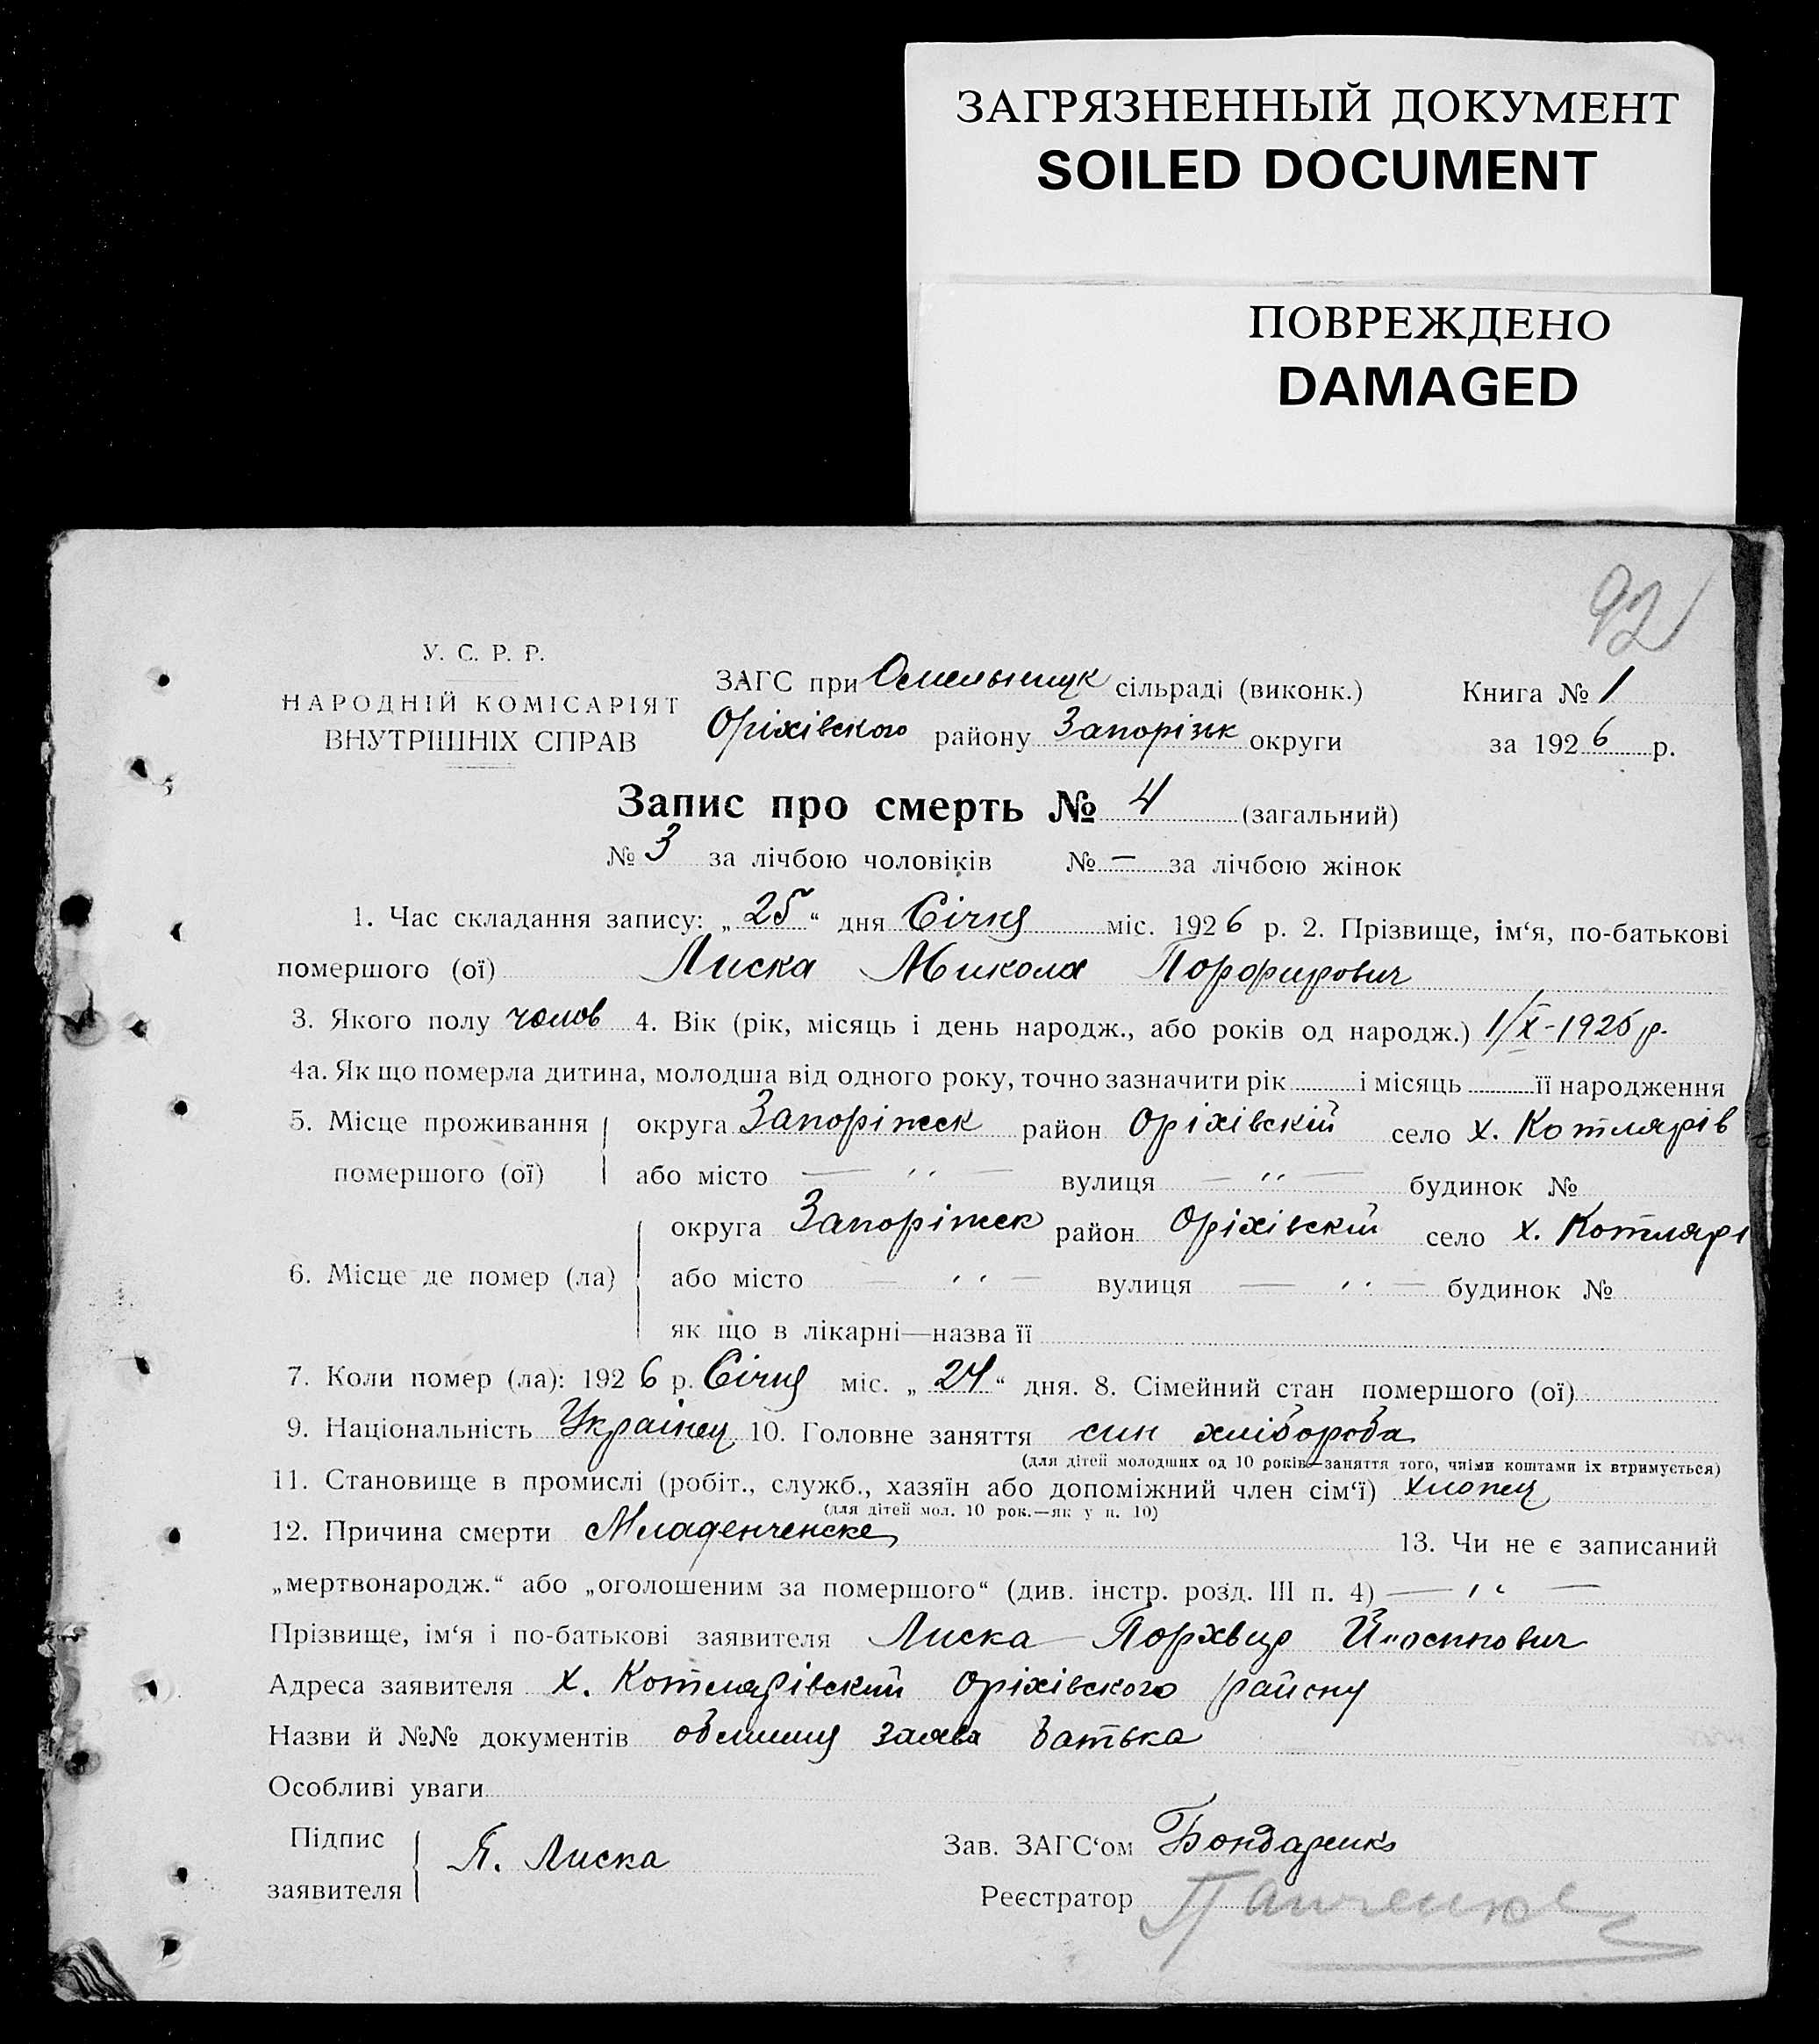 ЗАГРЯЗНЕННЫЙ ДОКУМЕНТ
SOILED DOCUMENT
ПОВРЕЖДЕНО
DAMAGED
92
У. С. Р. Р.
НАРОДНІЙ КОМІСАРІЯТ
ВНУТРІШНІХ СПРАВ
ЗАГС при Омельницк сільраді (виконк.)
Оріхівского району Запорізк округи
Книга № 1
за 1926 р.
Запис про смерть № 4 (загальний)
№ 3 за лічбою чоловіків № — за лічбою жінок
1. Час складання запису: „25“ дня Січня міс. 1926 р. 2. Прізвище, ім‘я, по-батькові
помершого (ої) Лиска Микола Порфирович
3. Якого полу чолов 4. Вік (рік, місяць і день народж., або років од народж.) 1/X-1925 р.
4а. Як що померла дитина, молодша від одного року, точно зазначити рік і місяць її народження
5. Місце проживання помершого (ої) округа Запоріжск район Оріхівскій село х. Котлярів
або місто — ‘‘ — вулиця — ‘‘ — будинок №
6. Місце де помер (ла) округа Запоріжск район Оріхівскій село х. Котлярі
або місто — ‘‘ — вулиця — ‘‘ — будинок №
як що в лікарні—назва її
7. Коли помер (ла): 1926 р. Січня міс. „24“ дня. 8. Сімейний стан помершого (ої)
9. Національність Українец 10. Головне заняття син хлібороба
(для дітей молодших од 10 років—заняття того, чиїми коштами їх втримується)
11. Становище в промислі (робіт., служб., хазяїн або допоміжний член сім‘ї) хлопец
(для дітей мол. 10 рок.—як у п. 10)
12. Причина смерти Младенченске 13. Чи не є записаний
„мертвонародж.“ або „оголошеним за помершого“ (див. інстр. розд. III п. 4) — ‘‘ —
Прізвище, ім‘я і по-батькові заявителя Лиска Порхвир
Адреса заявителя х. Котлярівский Оріхівского району
Назви й №№ документів заява батька
Особливі уваги
Підпис заявителя П. Лиска
Зав. ЗАГС‘ом Бондаренко
Реєстратор Панченко